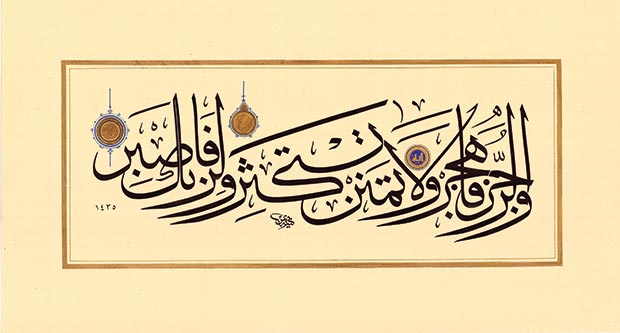 والرّجز فاهجر ولا تمنن تستكثر ولربك فاصبر
١٤٣٥